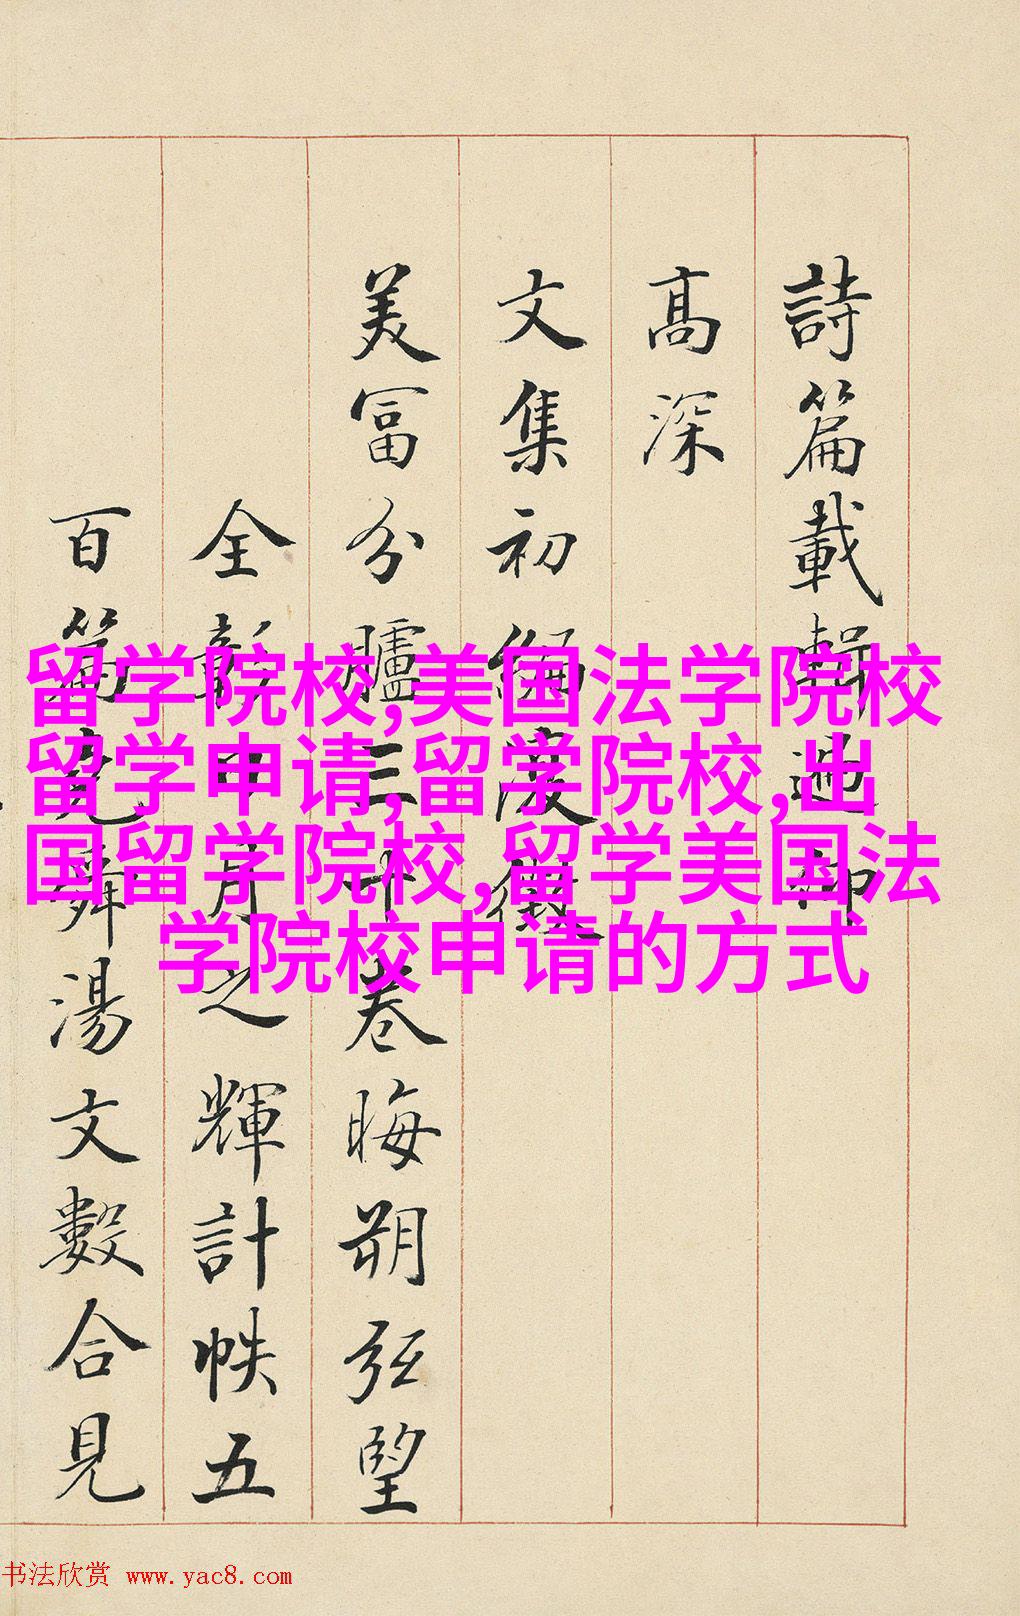 詩篇載輯仰
髙深
文集初編
美富分臚三十卷晦朔弦望
全彰日月之輝計帙五
百篇堯舜湯文數合見
留学院校,美国法学院校
留学申请,留学院校,出
国留学院校,留学美国法
学院校申请的方式
书法欣赏 www.yac8.com